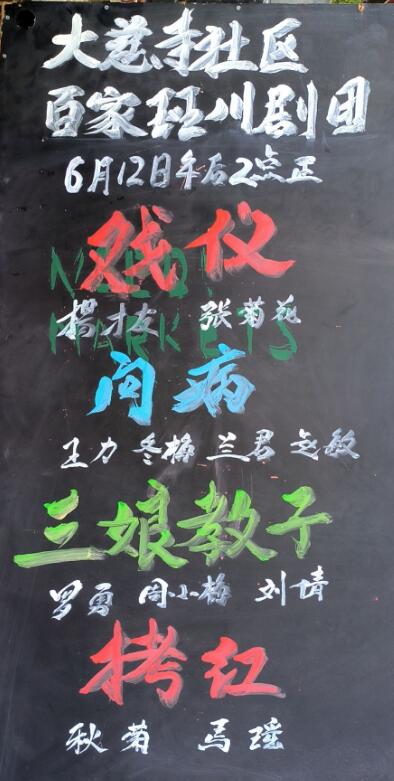 大慈寺社区
百家班川剧团
6月12日午后2点正
戏仪
杨才友 张菊花
问病
王力 冬梅 兰君 赵敏
三娘教子
罗勇 周小梅 刘靖
拷红
秋菊 马瑶